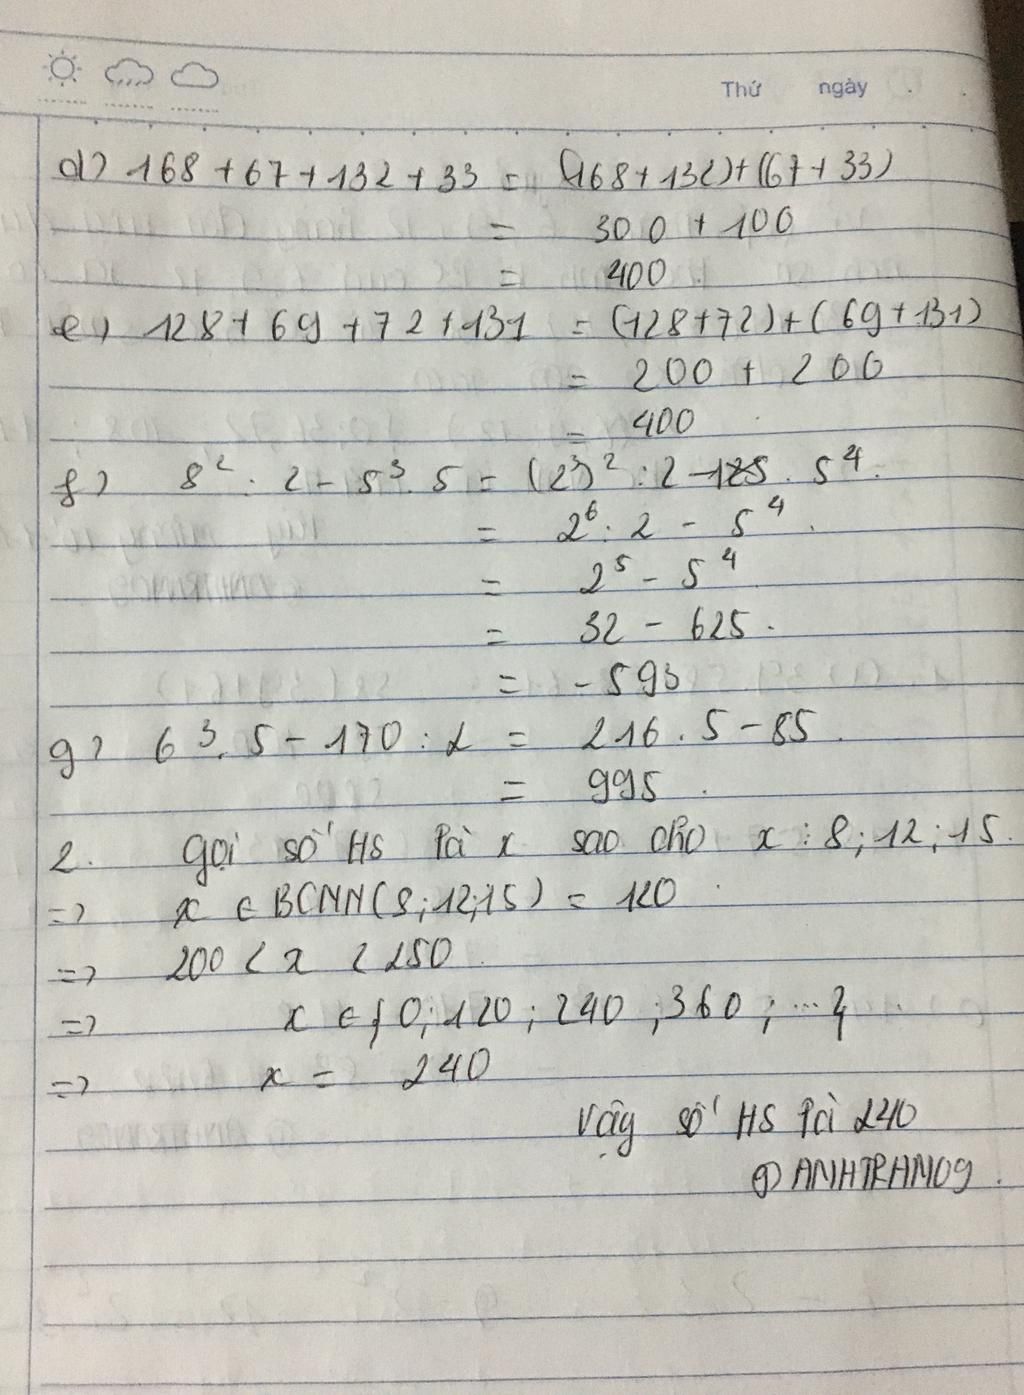 Thứ ngày
d) 168 + 67 + 132 + 33 = (168 + 132) + (67 + 33)
= 300 + 100
= 400
e) 128 + 69 + 72 + 131 = (128 + 72) + (69 + 131)
= 200 + 200
= 400
f) 8² : 2 - 5³. 5 = (2³)² : 2 - 5⁴.
= 2⁶ : 2 - 5⁴.
= 2⁵ - 5⁴
= 32 - 625.
= - 593
g) 6³. 5 - 170 : 2 = 216 . 5 - 85.
= 995.
2. Gọi số HS là x sao cho x ⋮ 8 ; 12 ; 15.
=> x ∈ BCNN(8 ; 12 ; 15) = 120
=> 200 < x < 250
=> x ∈ { 0 ; 120 ; 240 ; 360 ; ... }
=> x = 240
Vậy số HS là 240
@ANHTRAN09.